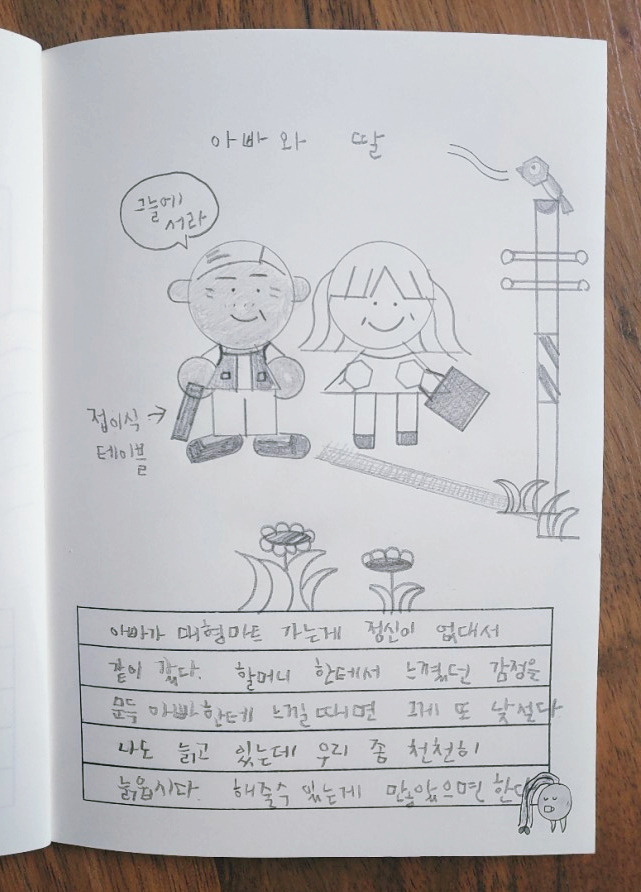 아빠와 딸
그늘에
서라
접이식 →
테이블
아빠가 대형마트 가는게 정신이 없대서
같이 갔다. 할머니 한테서 느꼈던 감정을
문득 아빠한테 느낄때면 그게 또 낯설다
나도 늙고 있는데 우리 좀 천천히
늙읍시다. 해줄수 있는게 많았으면 한다